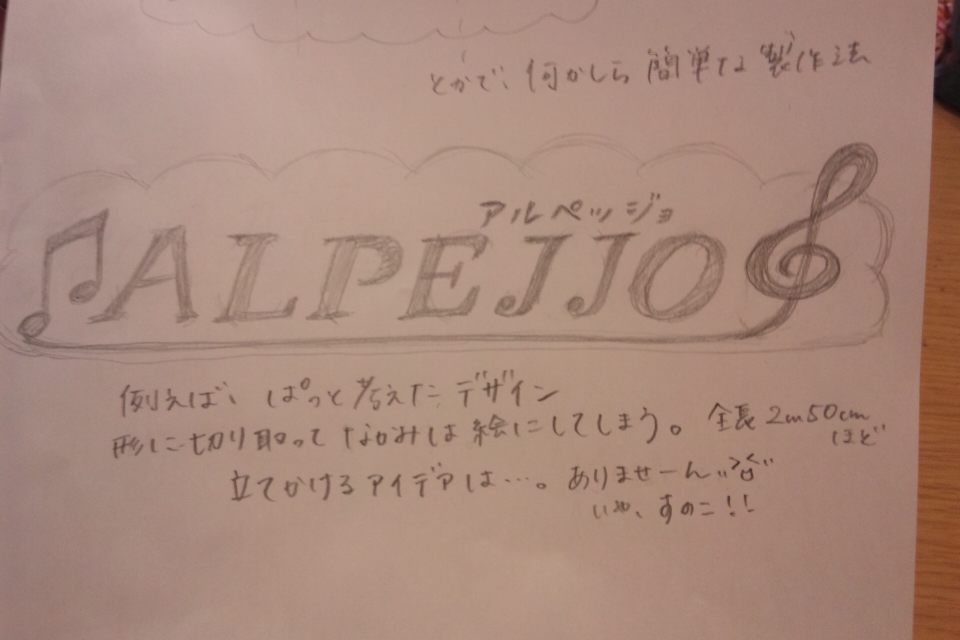 とかで、何かしら 簡単な 製作法
アルペッジョ
ALPEJJO
例えば、ぱっと考えたデザイン
形に切り取って なかみは 絵にしてしまう。 全長 2m50cm
ほど
立てかけるアイデアは…。ありませーん
いや、すのこ!!